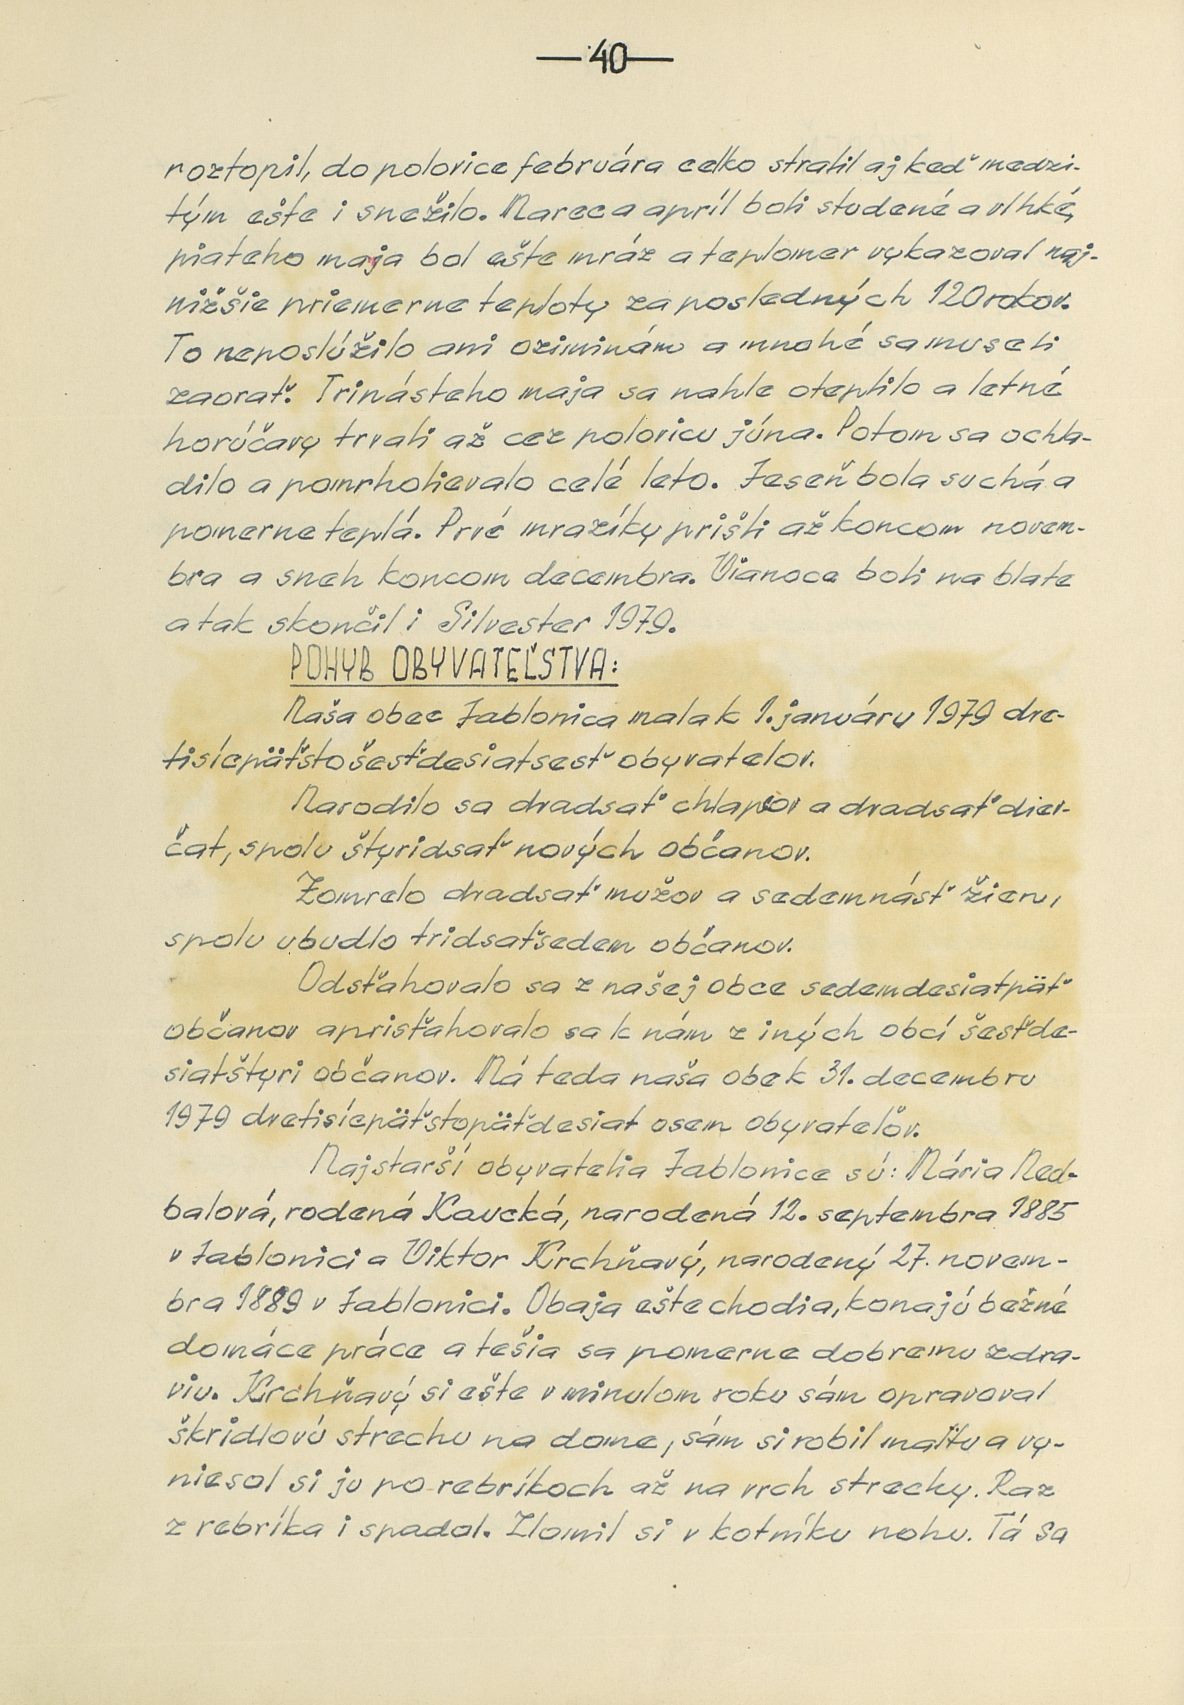 — 40 —
roztopil, do polovice februára celko stratil aj keď medzi-
tým ešte i snežilo. Marec a apríl boli studené a vlhké,
piateho maja bol ešte mráz a teplomer vykazoval naj-
nižšie priemerne teploty za posledných 120 rokov.
To neposlúžilo ani oziminám a mnohé sa museli
zaorať. Trinásteho maja sa nahle oteplilo a letné
horúčavy trvali až cez polovicu júna. Potom sa ochla-
dilo a pomrholievalo celé leto. Jeseň bola suchá a
pomerne teplá. Prvé mrazíky prišli až koncom novem-
bra a sneh koncom decembra. Vianoce boli na blate
a tak skončil i Silvester 1979.
POHYB OBYVATEĽSTVA:
Naša obec Jablonica mala k 1. januáru 1979 dve-
tisícpäťstošesťdesiatsesť obyvatelov.
Narodilo sa dvadsať chlapcov a dvadsať diev-
čat, spolu štyridsať nových občanov.
Zomrelo dvadsať mužov a sedemnásť žien,
spolu ubudlo tridsaťsedem občanov.
Odsťahovalo sa z našej obce sedemdesiatpäť
občanov a prisťahovalo sa k nám z iných obcí šesťde-
siatštyri občanov. Má teda naša obek 31. decembru
1979 dvetisícpäťstopäťdesiat osem obyvateľov.
Najstarší obyvatelia Jablonice sú: Mária Ned-
balová, rodená Kaucká, narodená 12. septembra 1885
v Jablonici a Viktor Krchňavý, narodený 27. novem-
bra 1889 v Jablonici. Obaja ešte chodia, konajú bežné
domáce práce a tešia sa pomerne dobremu zdra-
viu. Krchňavý si ešte v minulom roku sám opravoval
škridlovú strechu na dome, sám si robil maltu a vy-
niesol si ju po rebríkoch až na vrch strechy. Raz
z rebríka i spadol. Zlomil si v kotníku nohu. Tá sa